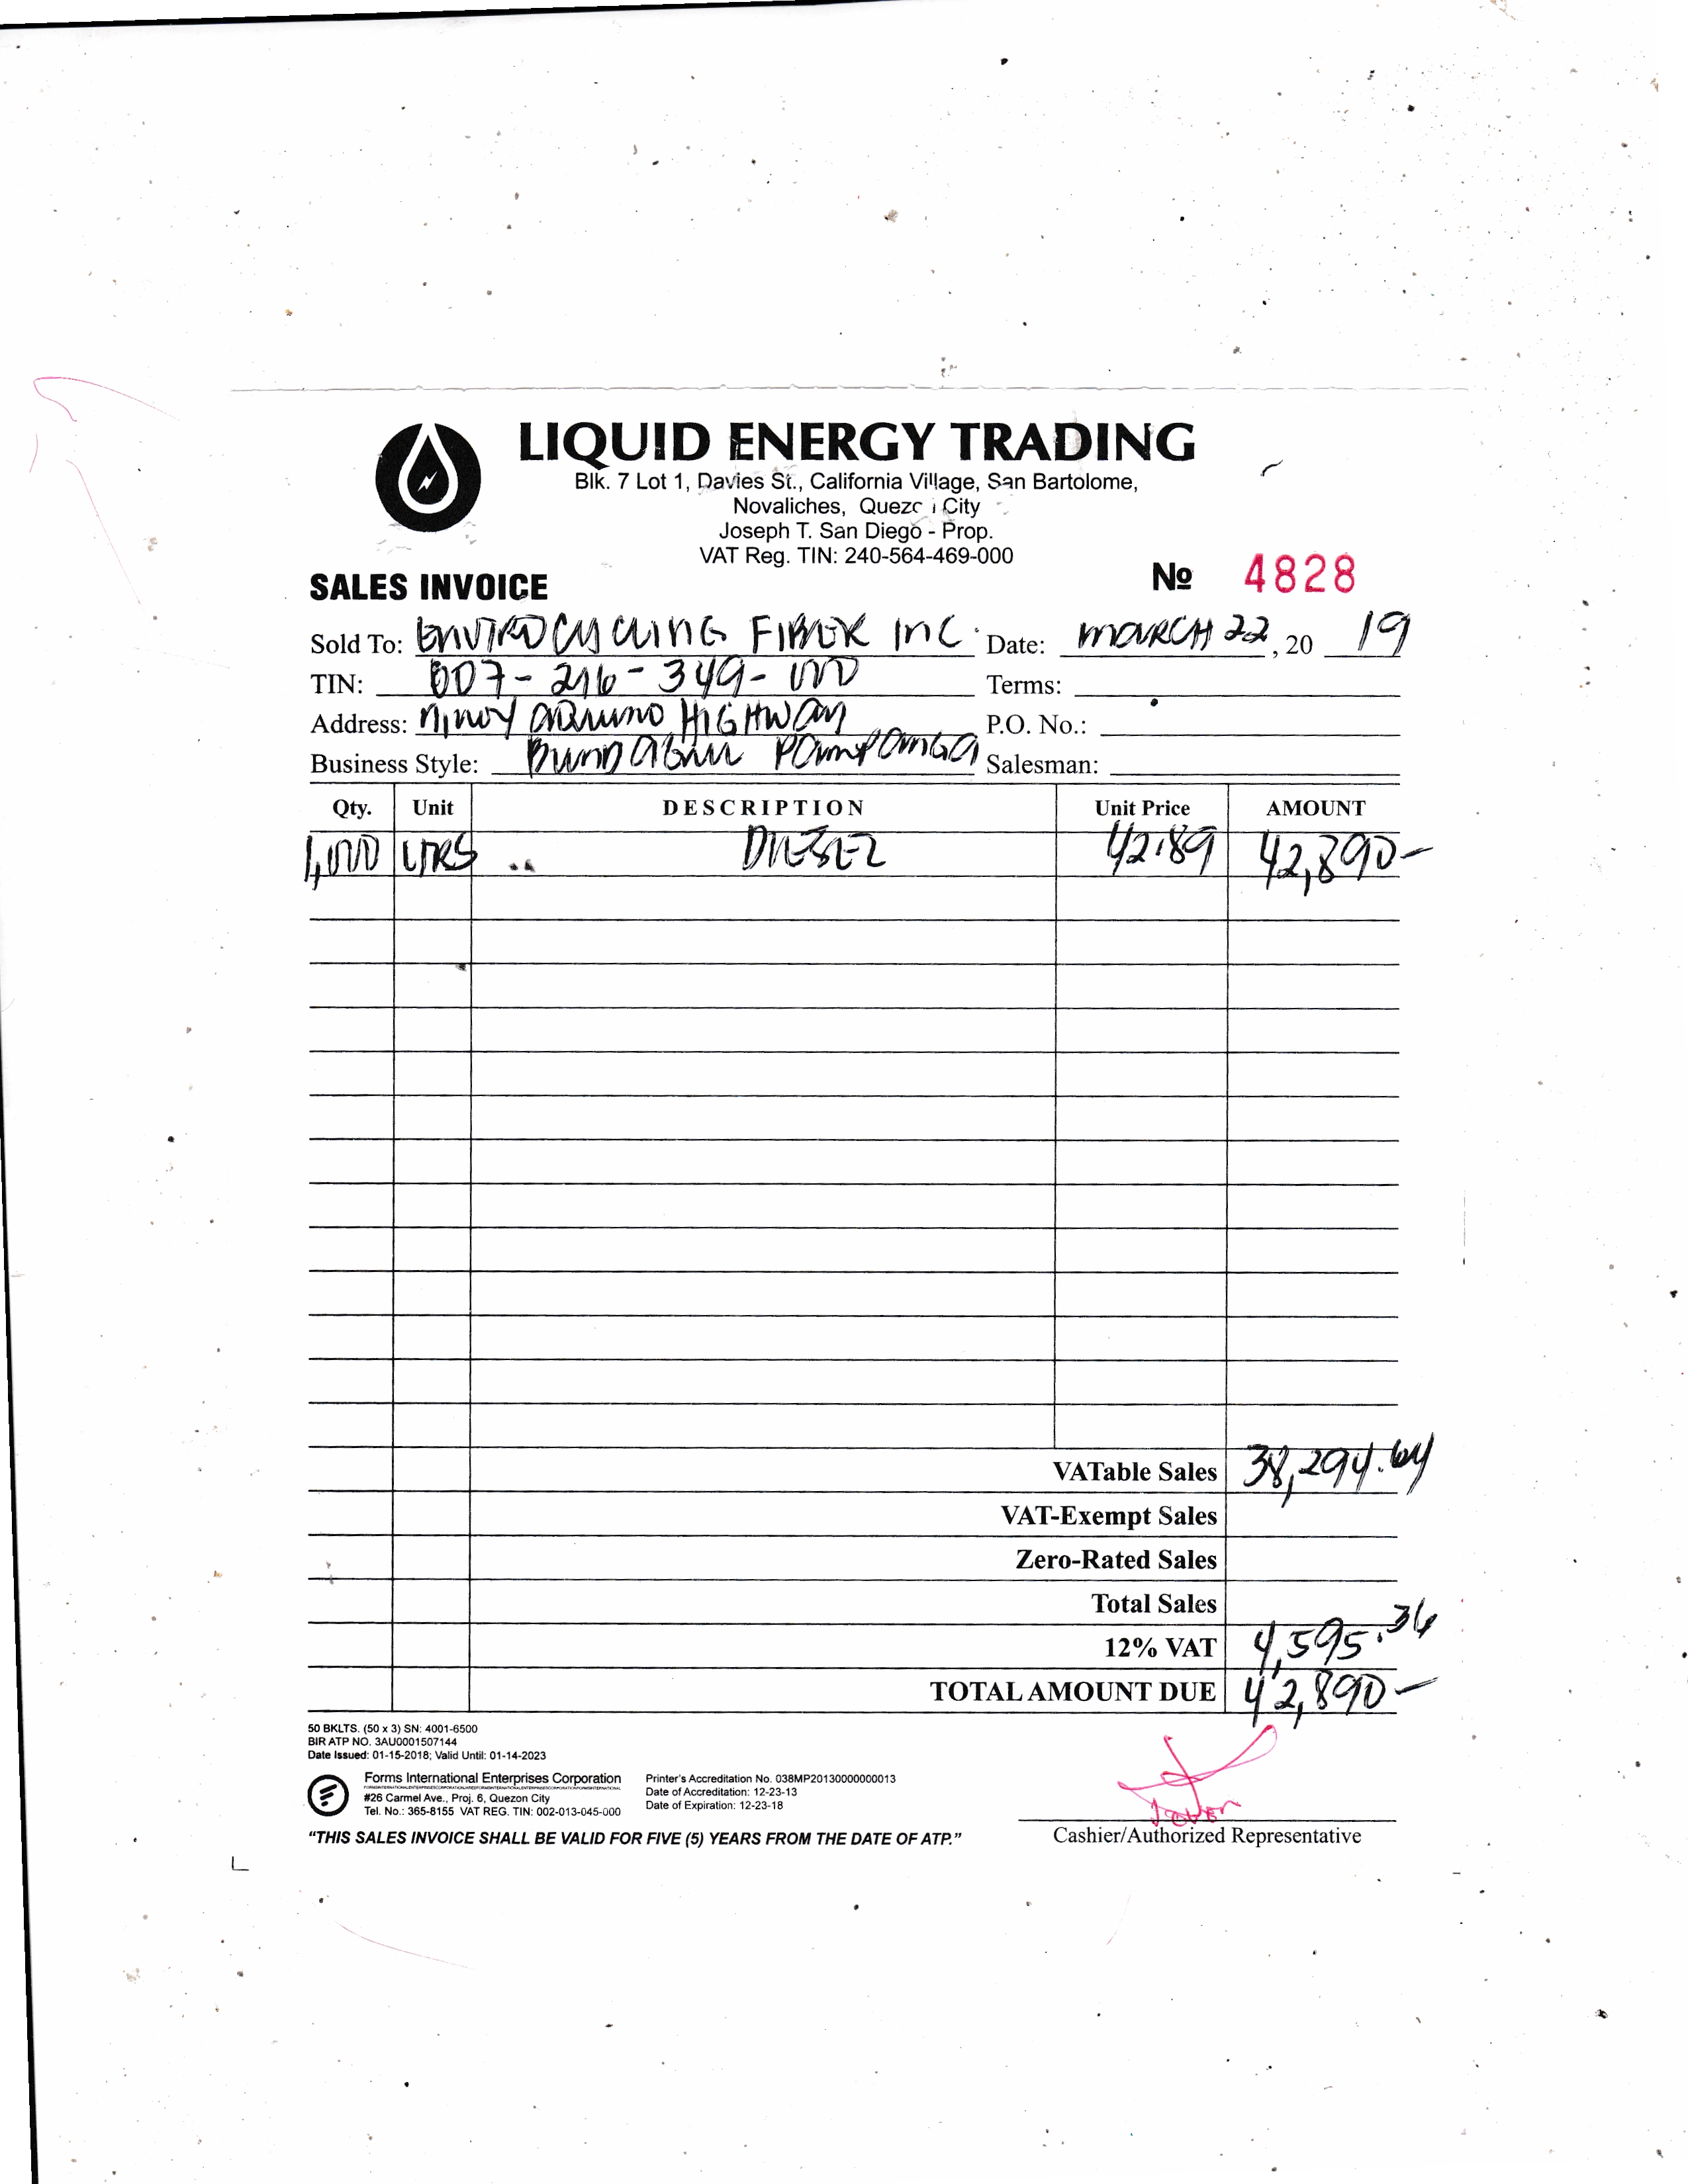 LIQUID ENERGY TRADING
Blk. 7 Lot 1, Davies St., California Village, San Bartolome,
Novaliches, Quezon City
Joseph T. San Diego - Prop.
VAT Reg. TIN: 240-564-469-000
SALES INVOICE
№ 4828
Sold To: ENVIROCYCLING FIBER INC. Date: MARCH 22, 20 19
TIN: 007-216-349-000 Terms:
Address: NINOY AQUINO HIGHWAY P.O. No.:
Business Style: PAMPANGA Salesman:
Qty. Unit DESCRIPTION Unit Price AMOUNT
1,000 LTRS DIESEL 42.89 42,890-
VATable Sales 38,294.64
VAT-Exempt Sales
Zero-Rated Sales
Total Sales
12% VAT 4,595.36
TOTAL AMOUNT DUE 42,890-
50 BKLTS. (50 x 3) SN: 4001-6500
BIR ATP NO. 3AU0001507144
Date Issued: 01-15-2018; Valid Until: 01-14-2023
Forms International Enterprises Corporation
#26 Carmel Ave., Proj. 6, Quezon City
Tel. No.: 365-8155 VAT REG. TIN: 002-013-045-000
Printer's Accreditation No. 038MP20130000000013
Date of Accreditation: 12-23-13
Date of Expiration: 12-23-18
"THIS SALES INVOICE SHALL BE VALID FOR FIVE (5) YEARS FROM THE DATE OF ATP."
Cashier/Authorized Representative